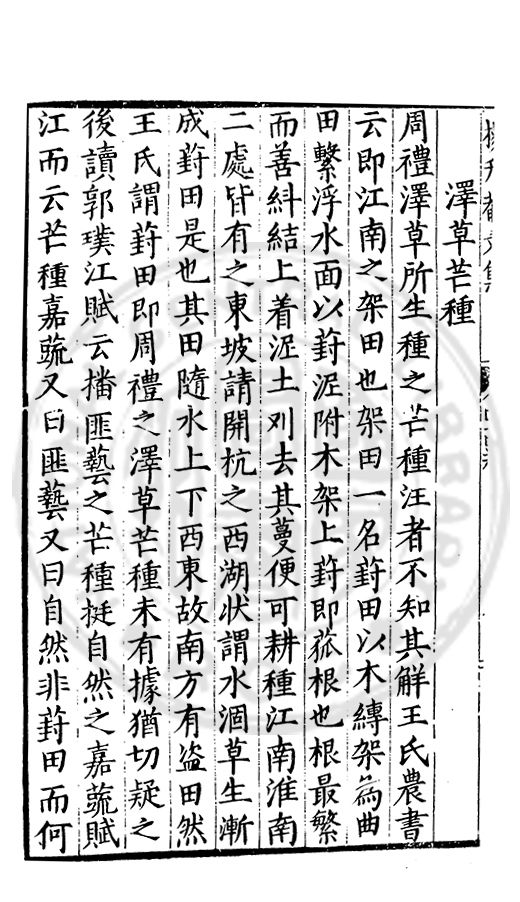 澤草芒種
周禮澤草所生種之芒種汪者不知其解王氏農書
云即江南之架田也架田一名葑田以木縳架為曲
田繫浮水面以葑泥附木架上葑即菰根也根最繁
而善糾結上着泥土刈去其蔓便可耕種江南淮南
二處皆有之東坡請開杭之西湖狀謂水涸草生漸
成葑田是也其田隨水上下西東故南方有盜田然
王氏謂葑田即周禮之澤草芒種未有據猶切疑之
後讀郭璞江賦云播匪藝之芒種挺自然之嘉蔬賦
江而云芒種嘉蔬又曰匪藝又曰自然非葑田而何